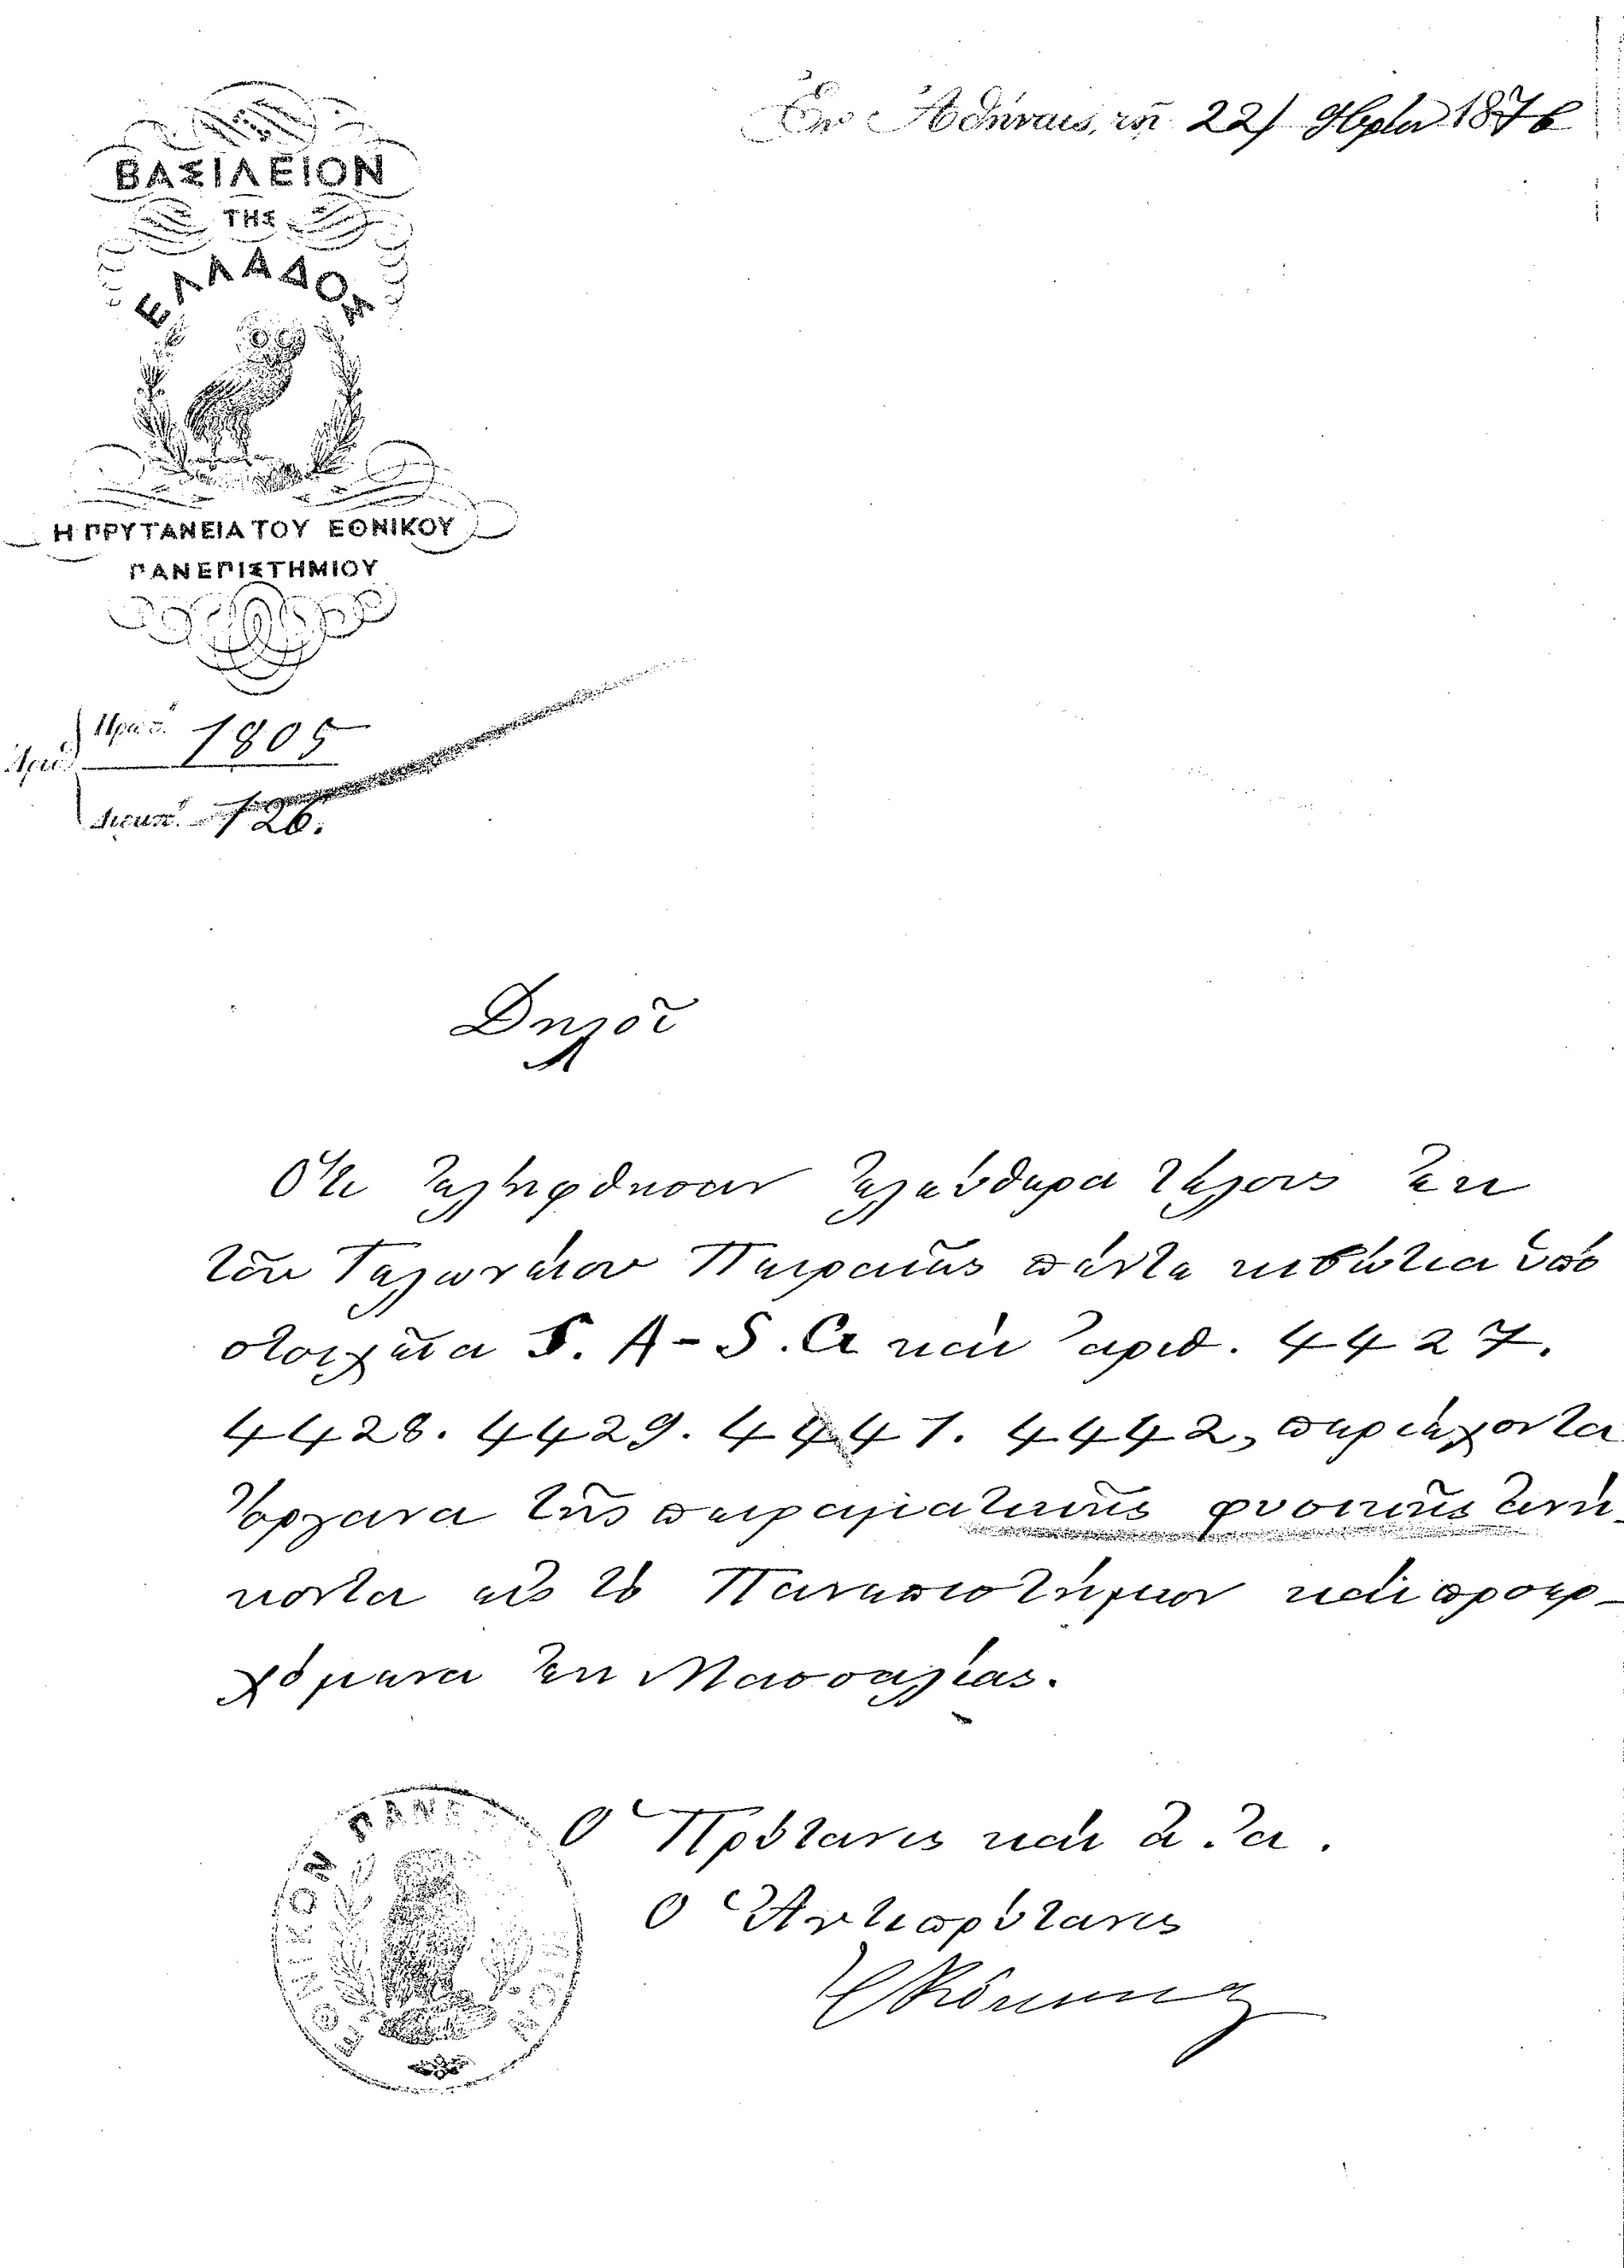 Ἐν Ἀθήναις, τῇ 22/ 9βρίου 1876
ΒΑΣΙΛΕΙΟΝ
ΤΗΣ
ΕΛΛΑΔΟΣ
Η ΠΡΥΤΑΝΕΙΑ ΤΟΥ ΕΘΝΙΚΟΥ
ΠΑΝΕΠΙΣΤΗΜΙΟΥ
Πρωτ. 1805
Ἀριθ.
Διεκπ. 126.
Δηλοῖ
Ὅτι ἐλήφθησαν ἐλεύθερα τέλους ἐκ
τοῦ Τελωνείου Πειραιῶς πέντε κιβώτια ὑπό
στοιχεῖα S. A - S. A καὶ ἀριθ. 4427.
4428. 4429. 4441. 4442, περιέχοντα
ὄργανα τῆς πειραματικῆς φυσικῆς ἀνή-
κοντα εἰς τὸ Πανεπιστήμιον καὶ προερ-
χόμενα ἐκ Μασσαλίας.
Ὁ Πρύτανις καὶ ἀ. ἀ.
Ὁ Ἀντιπρύτανις
ΕΘΝΙΚΟΝ ΠΑΝΕΠΙΣΤΗΜΙΟΝ